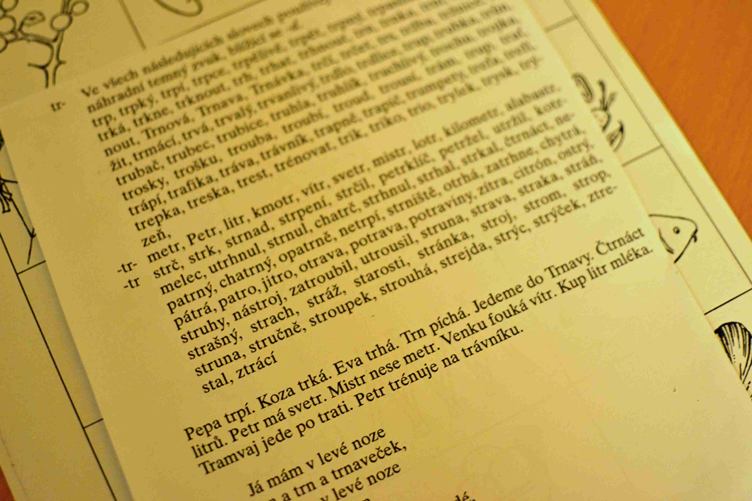 Ve všech následujících slovech
náhradní temný zvuk, blížící se
tr- trp, trpký, trpí, trpce, trpělivě, trpět,
trká, trkne, trknout, trh, trhat, trhnout, trn, trnka,
nout, Trnová, Trnava, Trnávka, trčí, trčet,
žit, trmácí, trvá, trvalý, trvanlivý, trdlo,
trubač, trubec, trubice, truhla, truhlík, truchlivý,
trosky, trošku, trouba, troubí, troud, trousí,
trápí, trafika, tráva, trávník, trapně, trapič, trumpety,
trepka, treska, trest, trénovat, trik, triko, trio,
zeň,
-tr- metr, Petr, litr, kmotr, vítr, svetr, mistr, lotr, kilometr, alabastr,
-tr strč, strk, strnad, strpení, strčil, petrklíč, petržel, utržil, kotr-
melec, utrhnul, strnul, chatrč, strhnul, strhal, strkal, čtrnáct, ne-
patrný, chatrný, opatrně, netrpí, strniště, otrhá, zatrhne, chytrá,
pátrá, patro, jitro, otrava, potrava, potraviny, zítra, citrón, ostrý,
struhy, nástroj, zatroubil, utrousil, struna, strava, straka, stráň,
strašný, strach, stráž, starosti, stránka, stroj, strom, strop,
struna, stručně, stroupek, strouhá, strejda, strýc, strýček, ztre-
stal, ztrácí
Pepa trpí. Koza trká. Eva trhá. Trn píchá. Jedeme do Trnavy. Čtrnáct
litrů. Petr má svetr. Mistr nese metr. Venku fouká vítr. Kup litr mléka.
Tramvaj jede po trati. Petr trénuje na trávníku.
Já mám v levé noze
a trn a trnaveček,
v levé noze